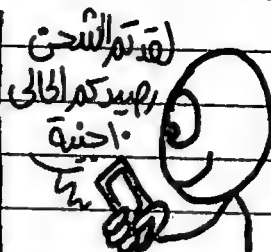 لقد تم الشحن
رصيدكم الحالى
١٠ جنية